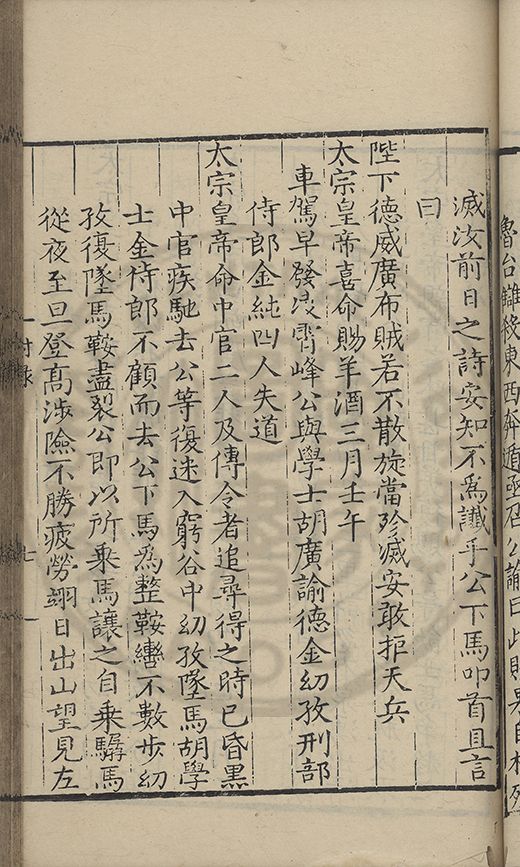 魯台雖移東西奔遁亟召公諭曰此賊果自相
滅汝前日之詩安知不為讖乎公下馬叩首且言
曰
陛下德威廣布賊若不散旋當殄滅安敢拒天兵
太宗皇帝喜命賜羊酒三月壬午
車駕早發凌霄峰公與學士胡廣諭德金幼孜刑部
侍郎金純四人失道
太宗皇帝命中官二人及傳令者追尋得之時已昏黑
中官疾馳去公等復迷入窮谷中幼孜墜馬胡學
士金侍郎不顧而去公下馬為整鞍轡不數步幼
孜復墜馬鞍盡裂公即以所乘馬讓之自乘驏馬
從夜至旦登高涉險不勝疲勞翊日出山望見左
附錄
七